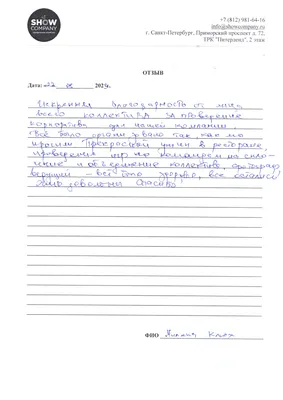 SHOW
COMPANY
+7 (812) 981-04-16
info@showcompany
г. Санкт-Петербург, Приморский проспект д. 72,
ТРК "Питерлэнд", 2 этаж
ОТЗЫВ
Дата: «22» 202 г.
Искренняя благодарность от лица
всего коллектива за проведение
корпоратива для нашей компании.
Всё было организовано так, как мы
просили. Прекрасный ужин в ресторане,
проведение игр на командном на спло-
чение и объединение коллектива, фотограф
ведущий - всё было здорово, все остались
довольны. Спасибо!
ФИО